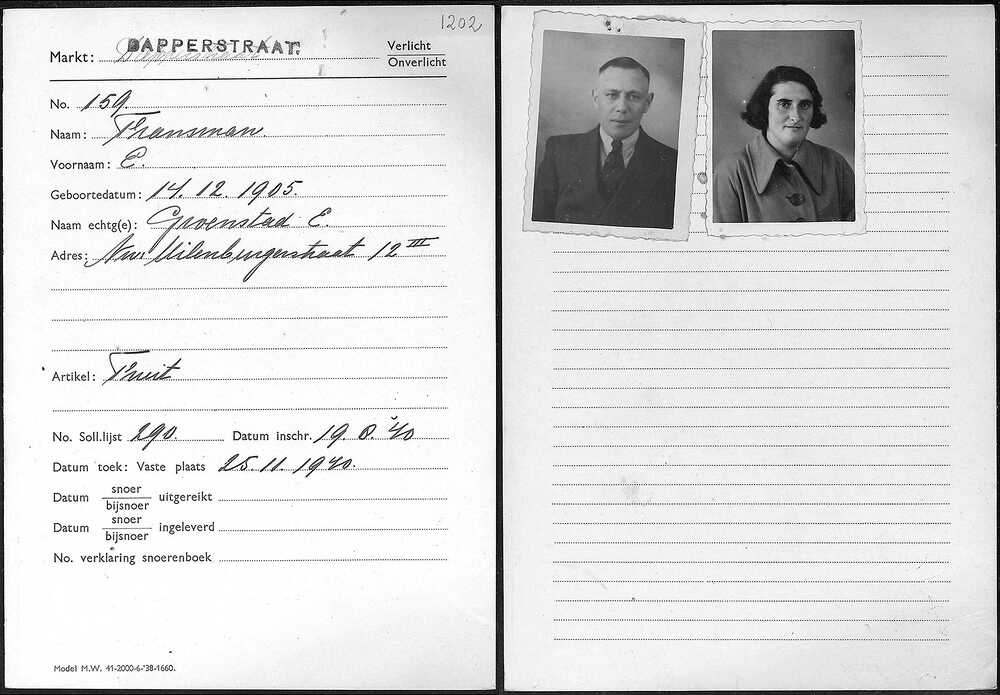 1202
Markt: DAPPERSTRAAT. Verlicht
Onverlicht
No. 159.
Naam: Fransman.
Voornaam: E.
Geboortedatum: 14. 12. 1905.
Naam echtg(e): Groenstad E.
Adres: Nwe Uilenburgerstraat 12 III
Artikel: Fruit
No. Soll.lijst 290. Datum inschr. 19. 8. '40
Datum toek: Vaste plaats 25. 11. 1940.
Datum snoer uitgereikt
bijsnoer
Datum snoer ingeleverd
bijsnoer
No. verklaring snoerenboek
Model M.W. 41-2000-6-'38-1660.